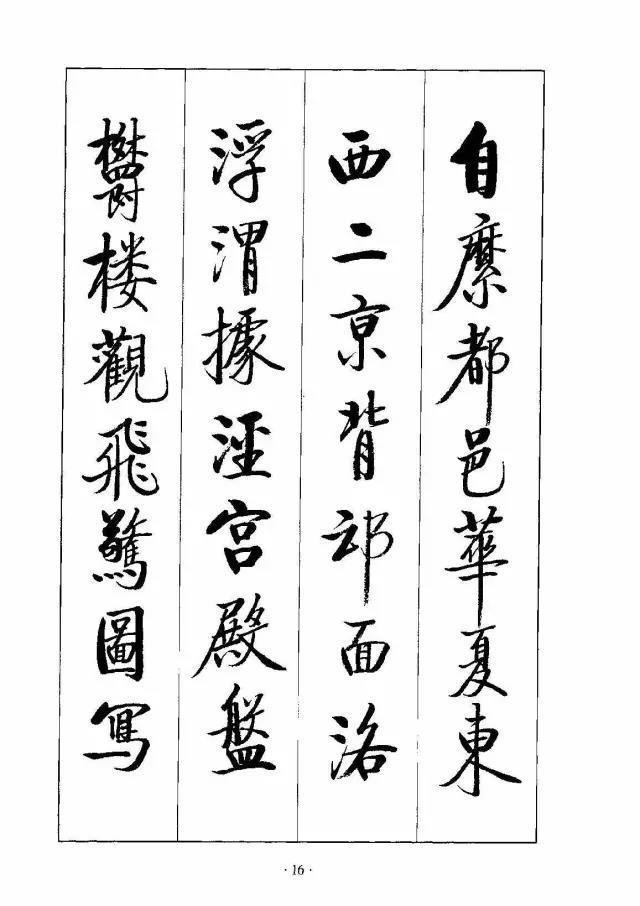 自縻都邑華夏東
西二京背邙面洛
浮渭據涇宫殿盤
鬱楼觀飛驚圖寫
· 16 ·